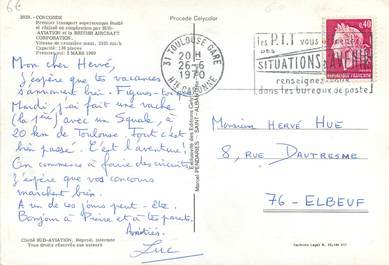 6€
2928. - CONCORDE
Premier transport supersonique étudié
et réalisé en coopération par SUD-
AVIATION et la BRITISH AIRCRAFT
CORPORATION.
Vitesse de croisière maxi. 2333 km/h
Capacité : 136 places
2 MARS 1969
Procédé Celycolor
31 TOULOUSE GARE
20H
26-6
1970
Hte GARONNE
les P.T.T vous offrent
DES
SITUATIONS D'AVENIR
renseignez-vous
dans les bureaux de poste
0,40
Mon cher Hervé,
J'espère que tes vacances
s'annoncent bien. Figures-toi que
Mardi, j'ai fait une vache
(la 1ère) avec un Squale, à
20 km de Toulouse. Tout c'est
bien passé. C'est l'aventure!
On commence à faire des circuits
J'espère que vos concours
marchent bien.
A un de ces jours peut-être.
Bonjour à Pierre et à tes parents.
Amitiés.
Luc
Monsieur HERVÉ HUE
8, RUE DAUTRESME
76 - ELBEUF
Marcel PENDARIES - SAINT-ALBAN
Cliché SUD-AVIATION, Reprod. interdite
Tous droits réservés aux auteurs